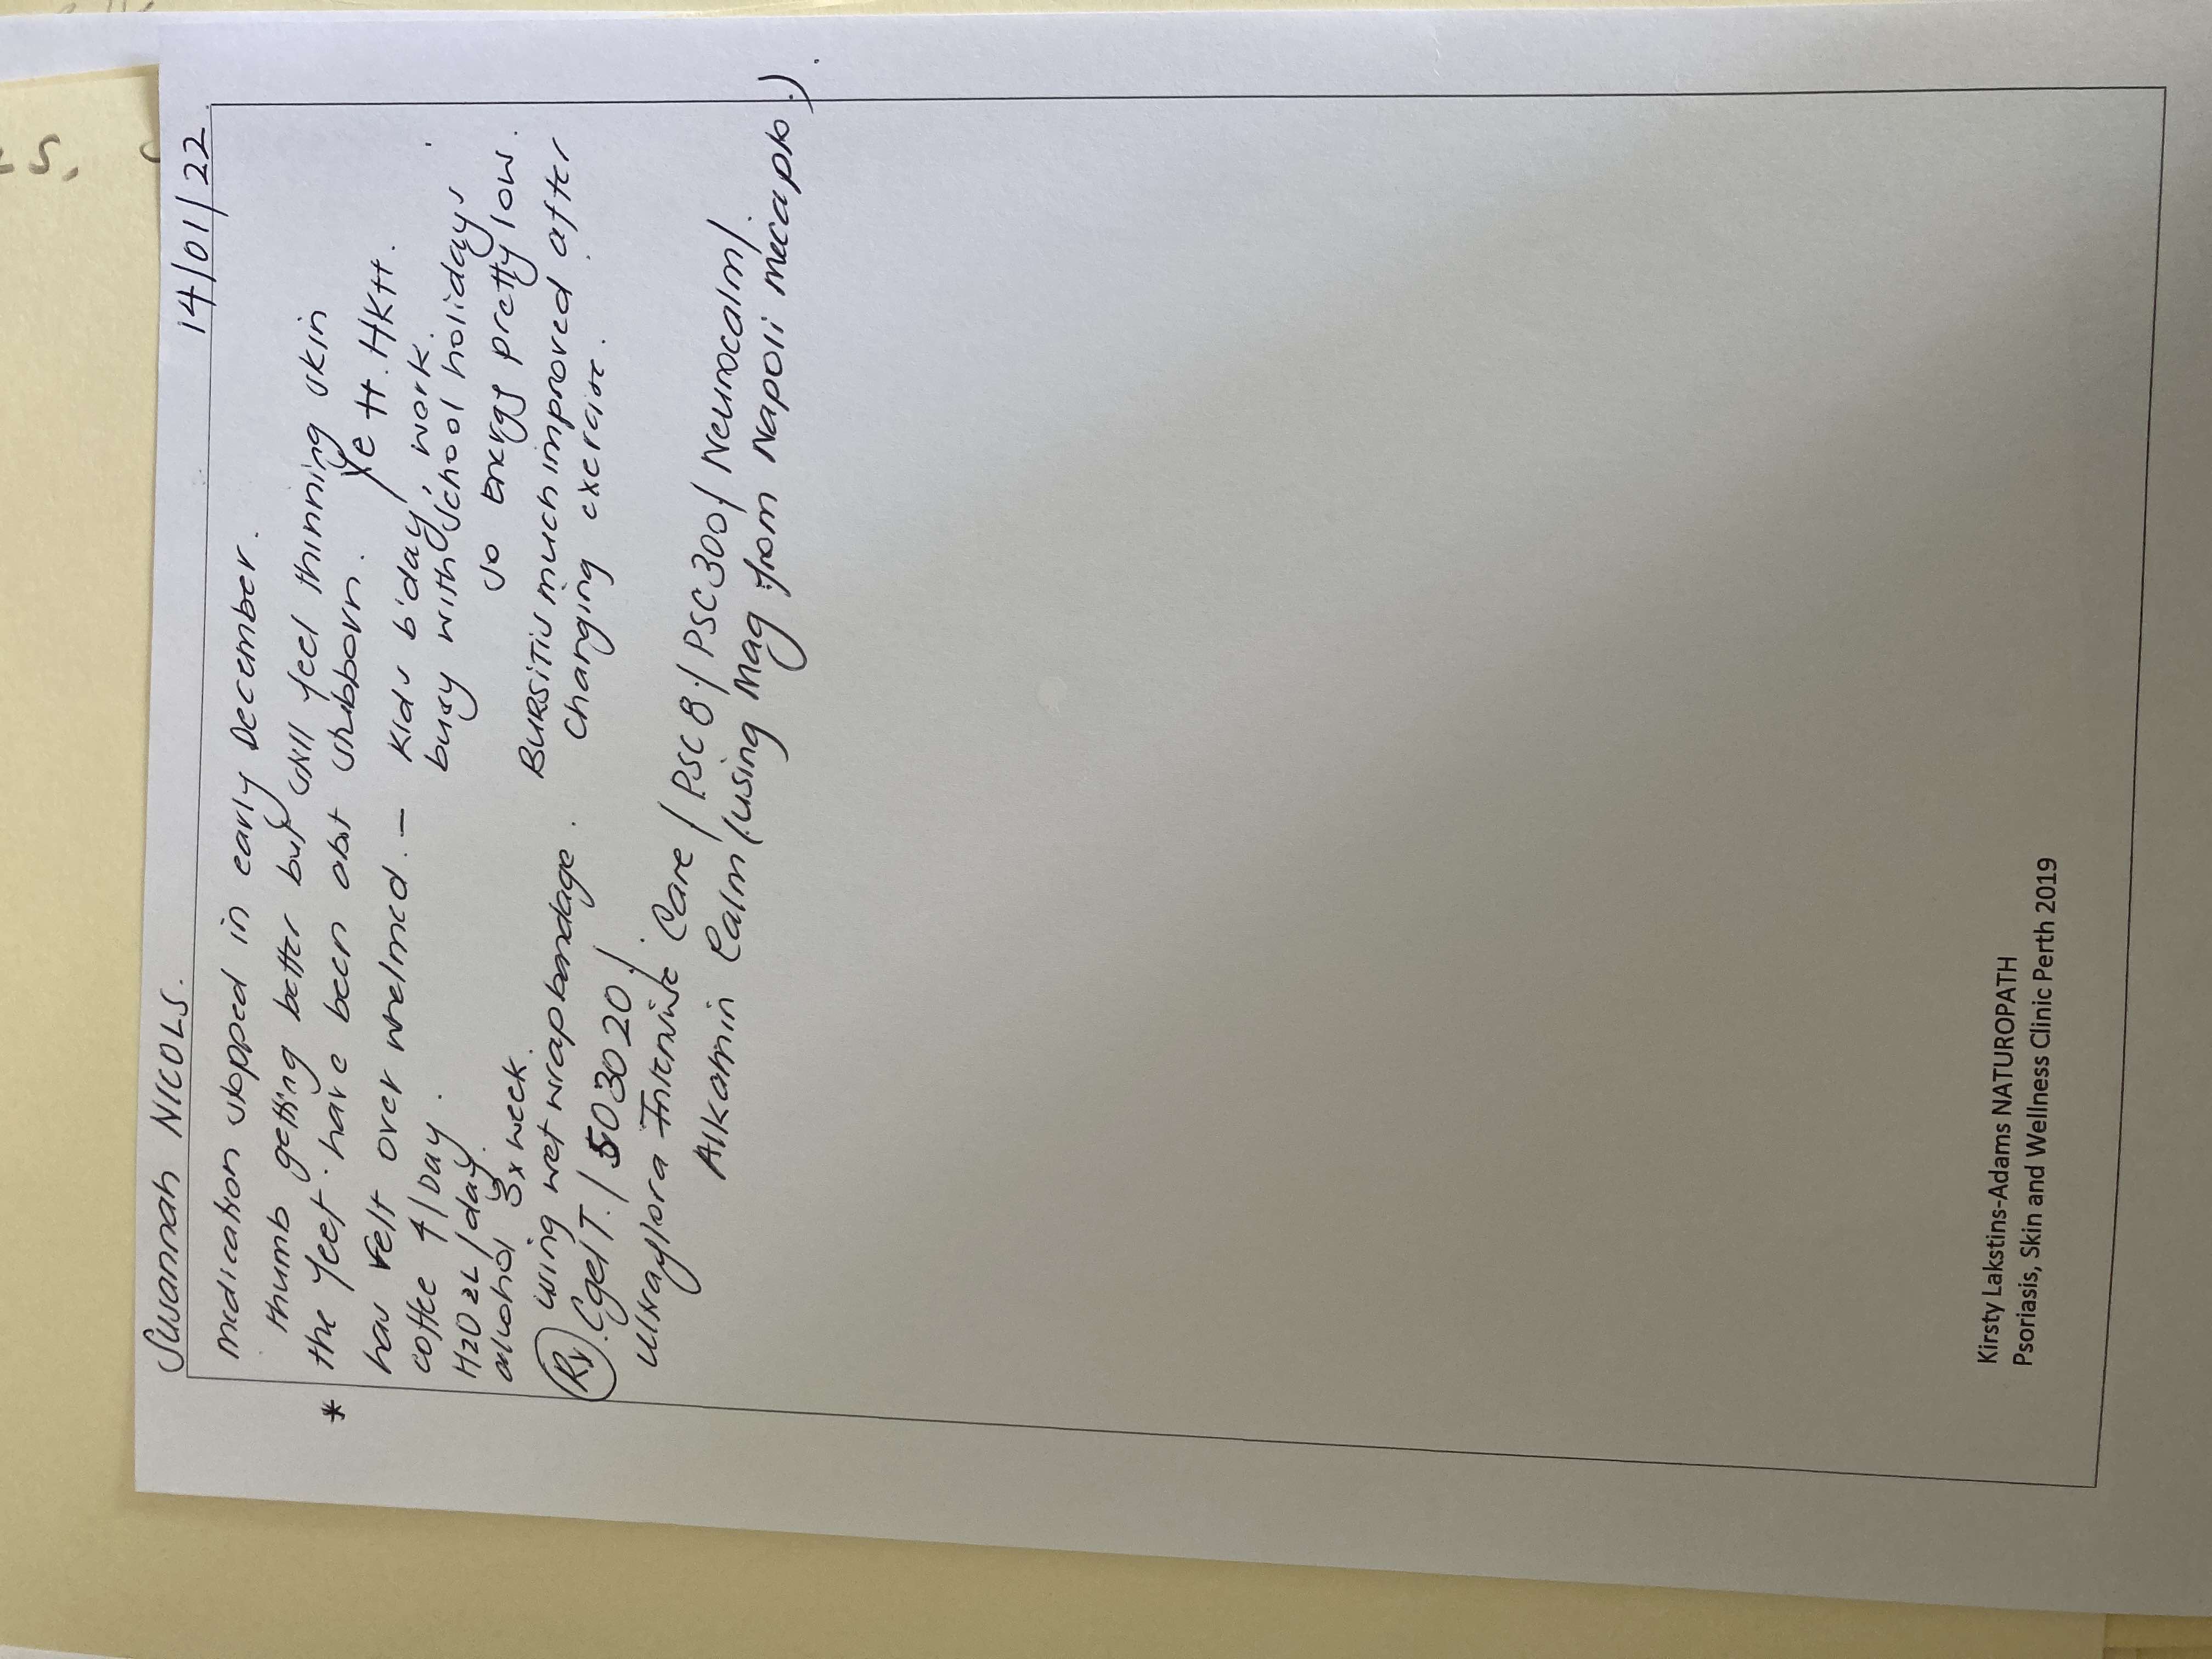 Susannah NICOLS. 14/01/22
medication stopped in early December.
thumb getting better but still feel thinning skin
* the feet have been abt stubborn. Ye H. HKH.
has felt over whelmed. – Kids b'day, work.
coffee 4/Day. busy with school holidays
H2O 2L/day. so energy pretty low.
alcohol 3x week.
using wet wrap bandage. BURSITIS much improved after
changing exercise.
Rv Cgel T. / 503020 /
Ultraflora Intensive Care / PSC 8 / PSC 300 / Neurocalm /
Alkamin Calm (using Mag from Napoli mecapk.).
Kirsty Lakstins-Adams NATUROPATH
Psoriasis, Skin and Wellness Clinic Perth 2019